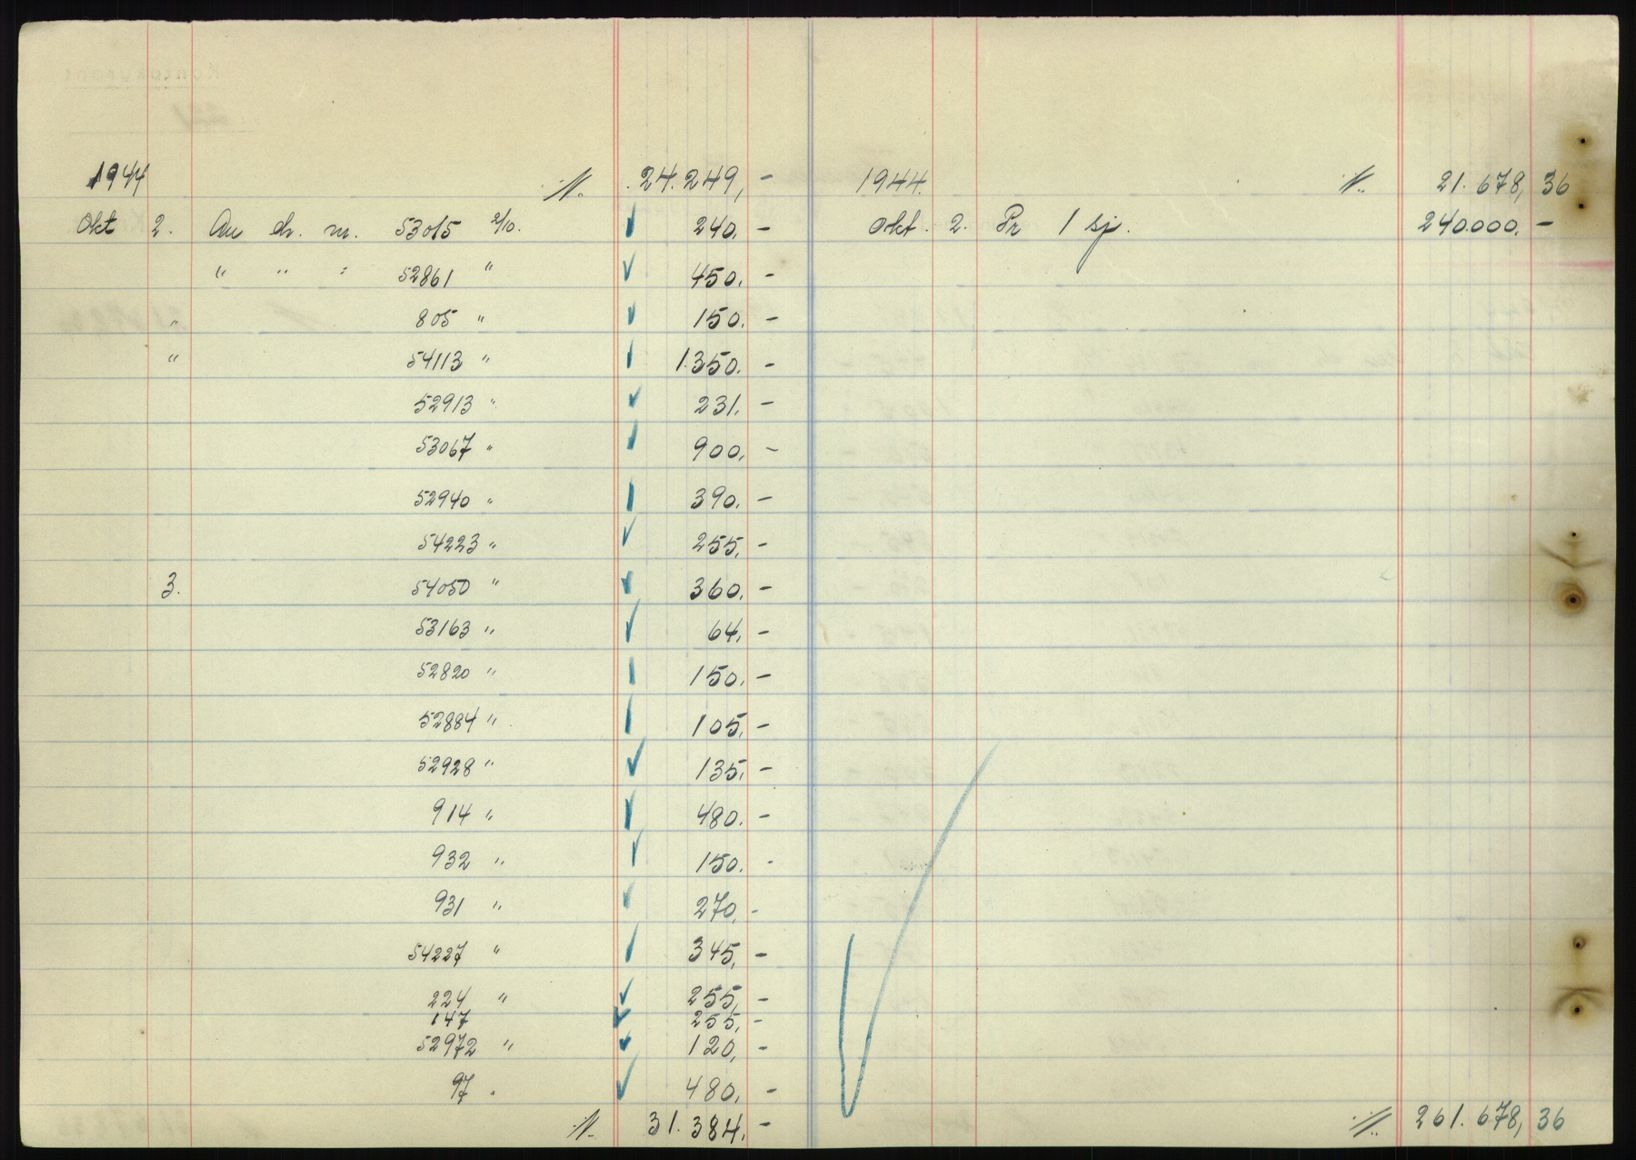 1944 ./. 24.249,-
Okt 2. An ch. nr. 53015 2/10. 240,-
" " : 52861 " 450,-
" 805 " 150,-
" 54113 " 1.350,-
52913 " 231,-
53067 " 900,-
52940 " 390,-
54223 " 255,-
3. 54050 " 360,-
53163 " 64,-
52820 " 150,-
52884 " 105,-
52928 " 135,-
914 " 480,-
932 " 150,-
931 " 270,-
54227 " 345,-
224 " 255,-
147 255,-
52972 " 120,-
97 . 480,-
31.384,-
1944. 21.678,36
Okt. 2. Pr 1 sj. 240.000,-
261.678,36